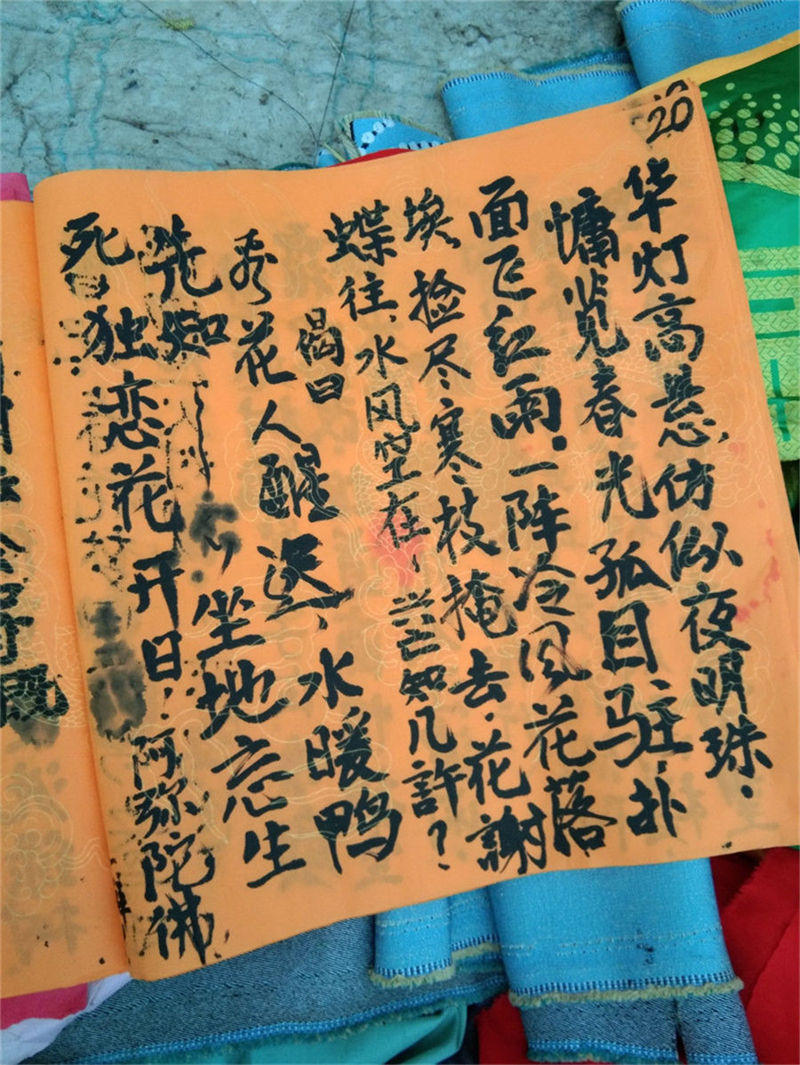 20
华灯高悬仿似夜明珠.
慵览春光孤目驻.扑
面飞红雨.一阵冷风花落
埃.捡尽寒枝掩去.花謝
蝶往.水风空在,芒知几許?
偈曰
花人醒迟.水暖鸭
先知,坐地忘生
死.独恋花开日.阿弥陀佛